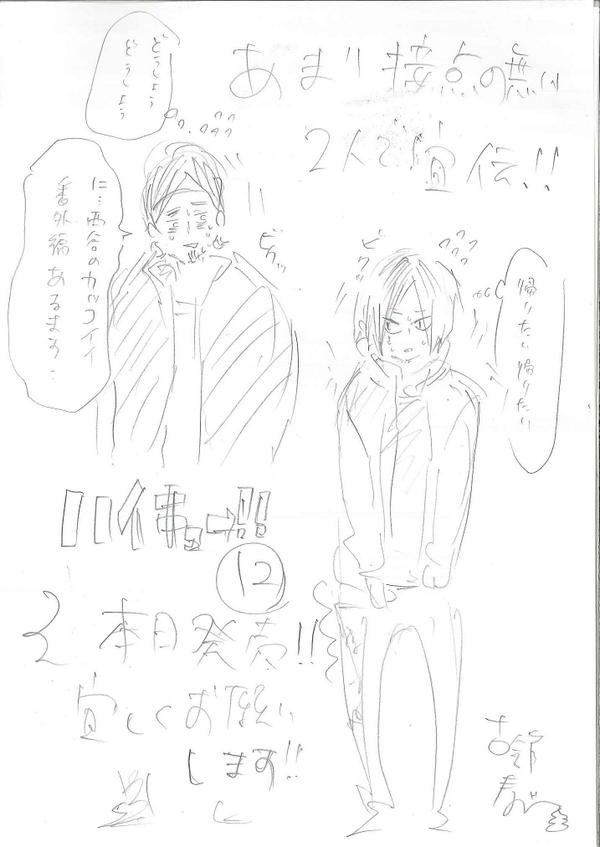 あまり接点の無い
2人で宣伝!!
どうしよう
どうしよう
に…西谷のカッコイイ
番外編あるまう…
ビクッ
ビクッ
帰りたい帰りたい
ハイキュー!!
12
本日発売!!
宜しくお願い
します!!
古舘